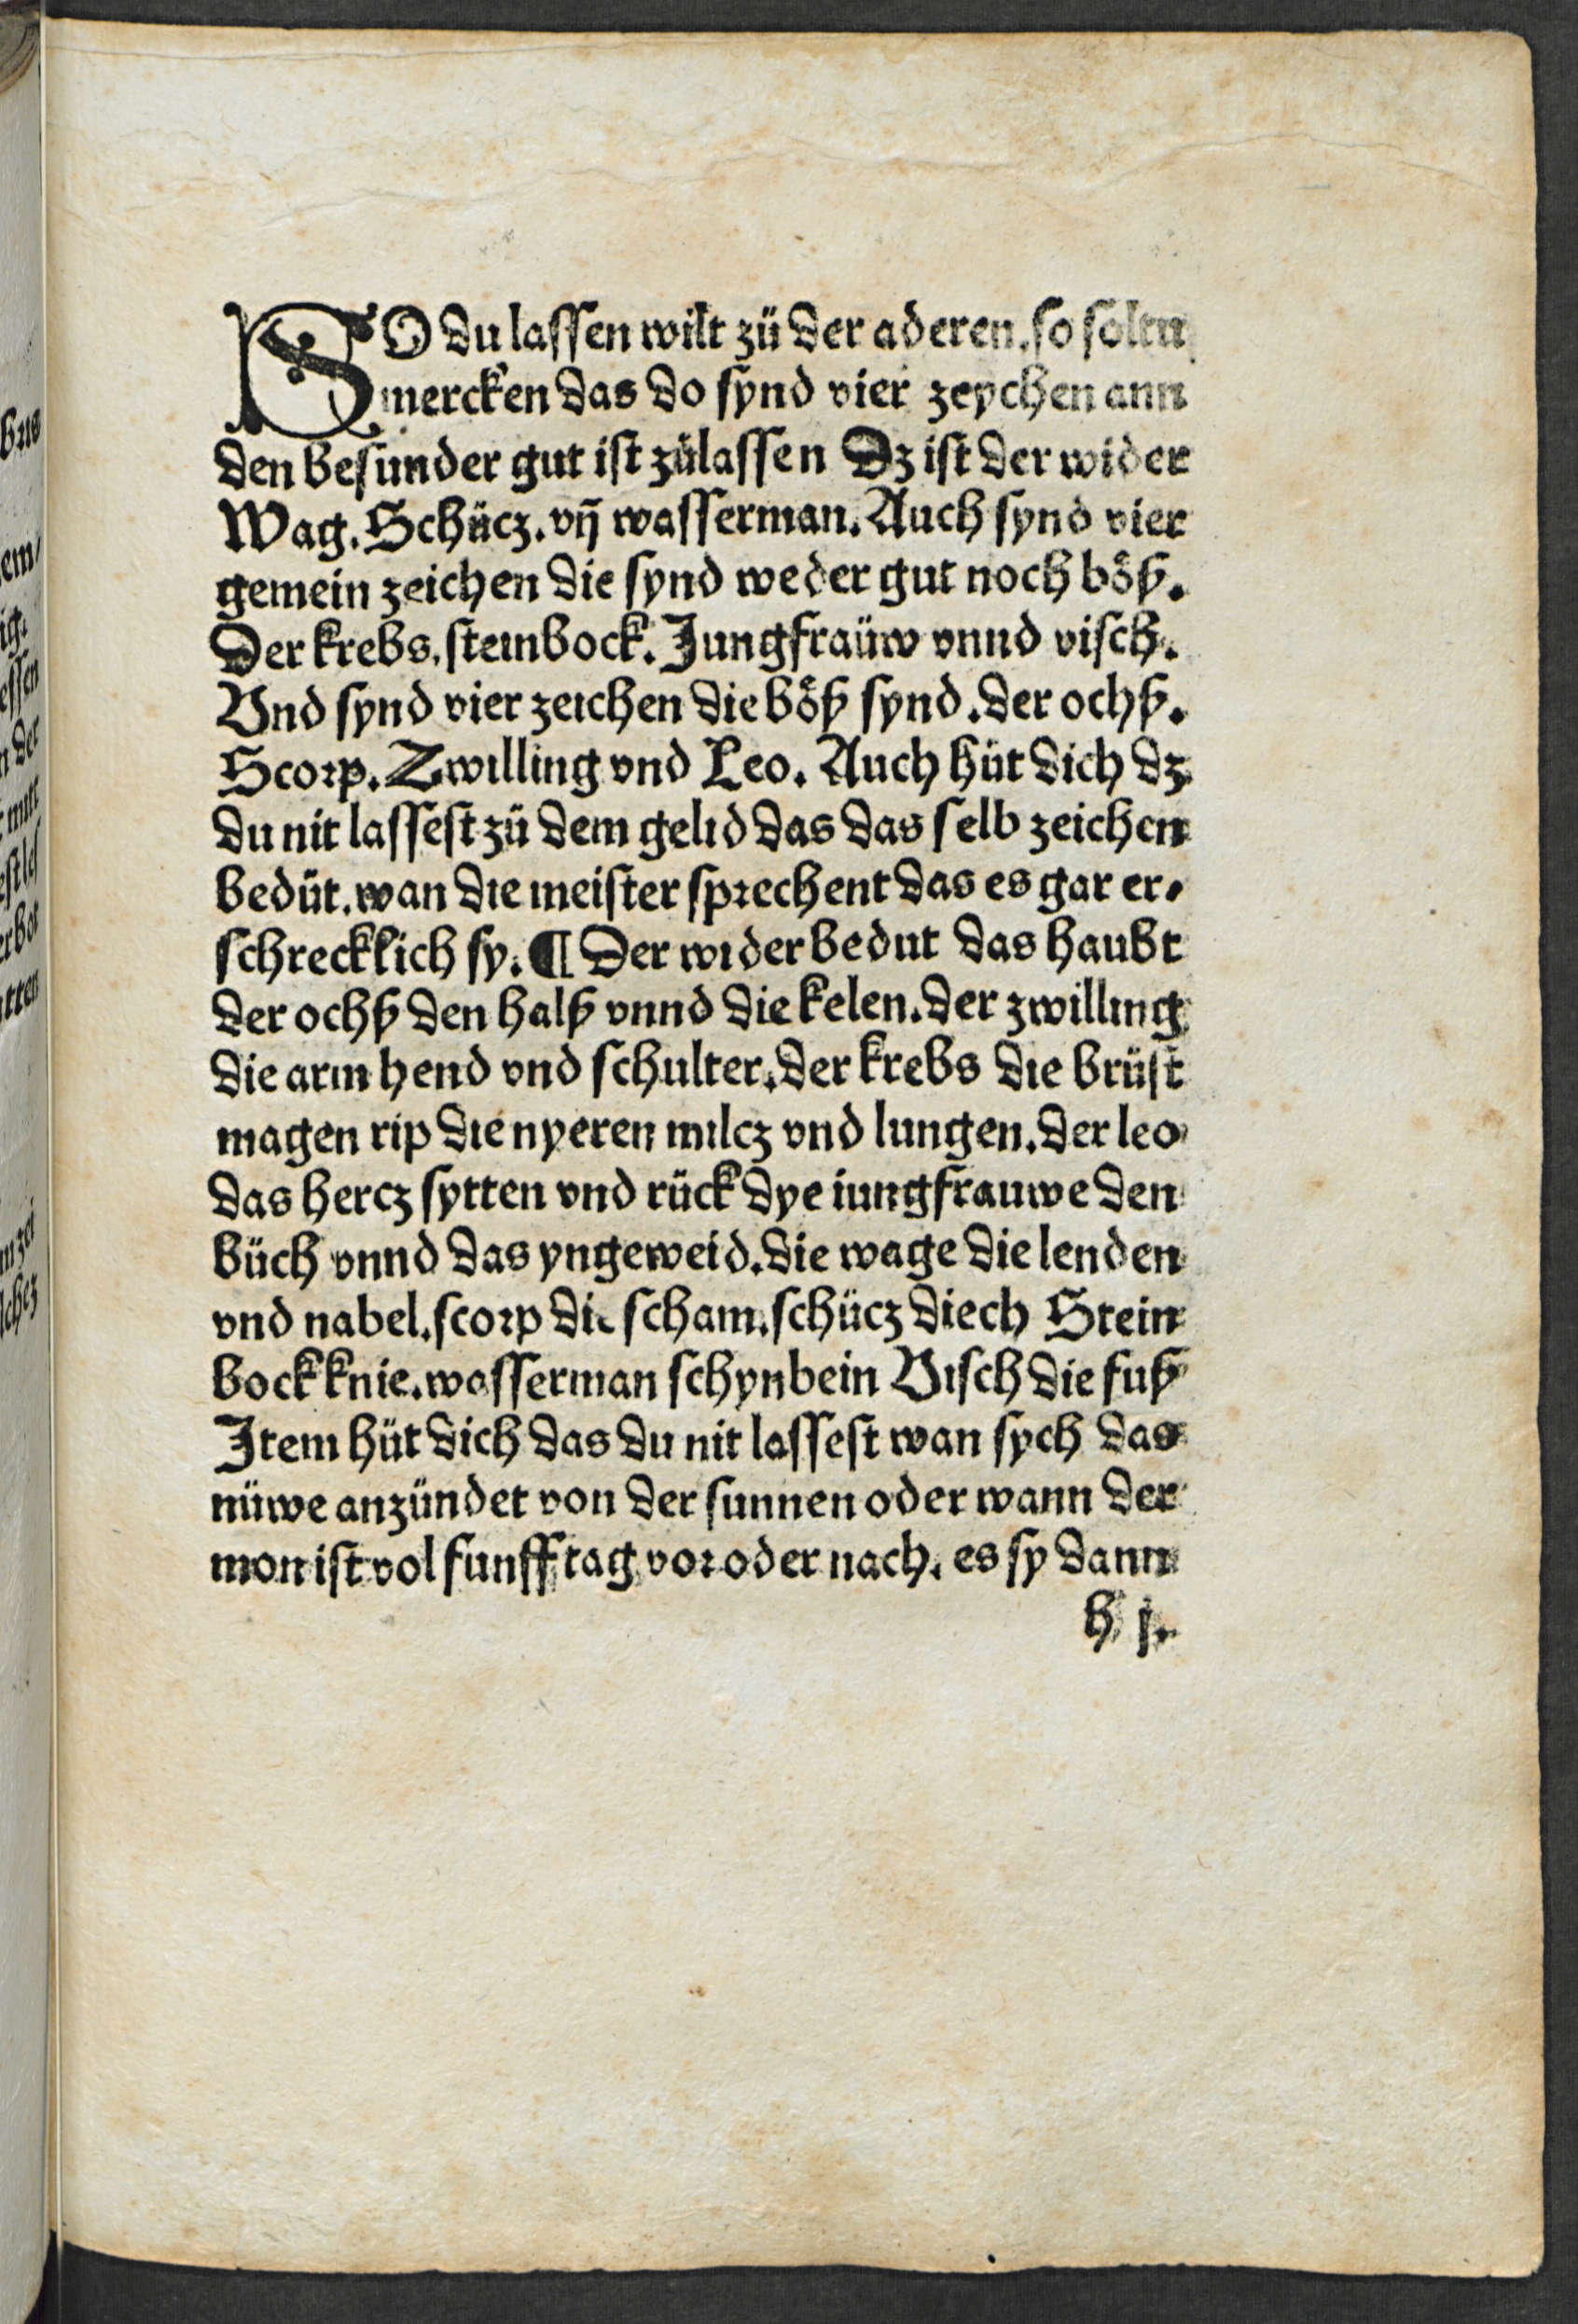 SO du lassen wilt zü der aderen. so soltu
mercken das do synd vier zeychen ann
den besunder gut ist zülassen Dz ist der wider
Wag. Schücz. vn̄ wasserman. Auch synd vier
gemein zeichen die synd weder gut noch böß.
Der krebs. steinbock. Jungfraüw vnnd visch.
Vnd synd vier zeichen die böß synd. der ochß.
Scorp. Zwilling vnd Leo. Auch hüt dich dz
du nit lassest zü dem gelid das das selb zeichen
bedüt. wan die meister sprechent das es gar er⸗
schrecklich sy. ¶ Der wider bedut das haubt
der ochß den halß vnnd die kelen. der zwilling
die arm hend vnd schulter. der krebs die brüst
magen rip die nyeren milcz vnd lungen. der leo
das hercz sytten vnd rück dye iungfrauwe den
büch vnnd das yngeweid. die wage die lenden
vnd nabel. scorp die scham. schücz diech Stein
bock knie. wasserman schynbein Visch die fuß
Item hüt dich das du nit lassest wan sych das
nüwe anzündet von der sunnen oder wann der
mon ist vol funff tag vor oder nach. es sy dann
h j.